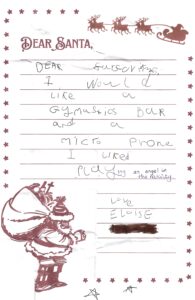 DEAR SANTA,
DEAR
I would
LIKE a
GYMNASTICS BAR
and a
MICRO PHONE
I LIKED
Playing an angel in
the Nativity.
Love
ELOISE